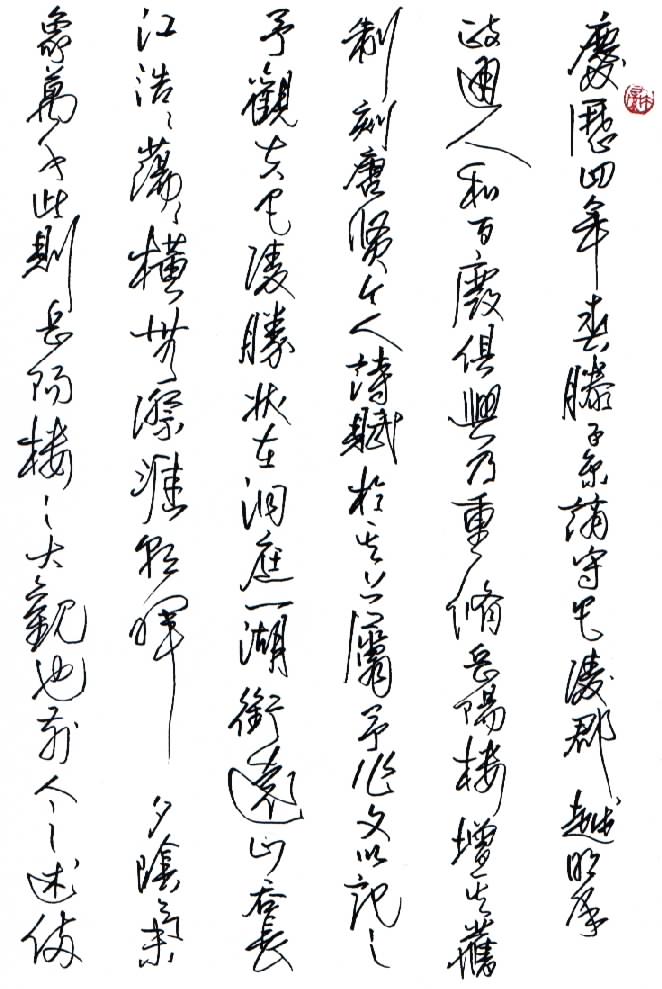 慶歷四年春滕子京謫守巴陵郡越明年
政通人和百廢俱興乃重脩岳陽楼增其舊
制刻唐賢今人詩賦於其上屬予作文以記之
予觀夫巴陵勝狀在洞庭一湖銜遠山吞長
江浩〻蕩〻橫無際涯朝暉夕陰氣
象萬千此則岳陽楼之大觀也前人之述備